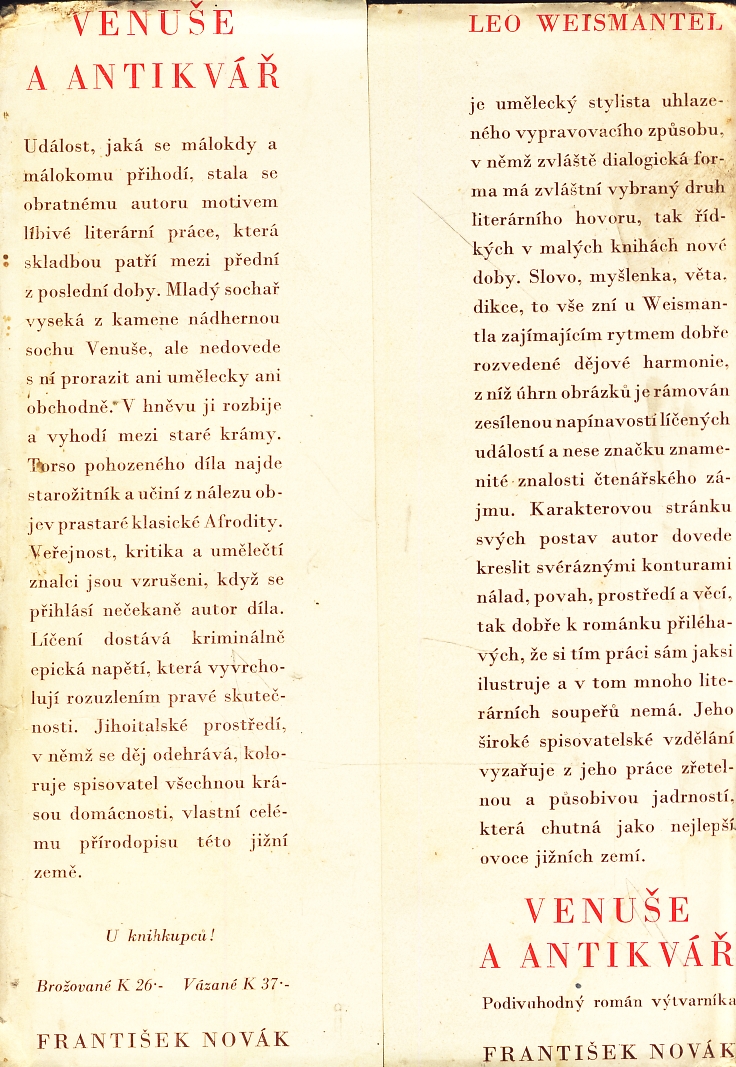 VENUŠE
A ANTIKVÁŘ
Událost, jaká se málokdy a
málokomu přihodí, stala se
obratnému autoru motivem
líbivé literární práce, která
skladbou patří mezi přední
z poslední doby. Mladý sochař
vyseká z kamene nádhernou
sochu Venuše, ale nedovede
s ní prorazit ani umělecky ani
obchodně. V hněvu ji rozbije
a vyhodí mezi staré krámy.
Torso pohozeného díla najde
starožitník a učiní z nálezu ob-
jev prastaré klasické Afrodity.
Veřejnost, kritika a umělečtí
znalci jsou vzrušeni, když se
přihlásí nečekaně autor díla.
Líčení dostává kriminálně
epická napětí, která vyvrcho-
lují rozuzlením pravé skuteč-
nosti. Jihoitalské prostředí,
v němž se děj odehrává, kolo-
ruje spisovatel všechnou krá-
sou domácnosti, vlastní celé-
mu přírodopisu této jižní
země.
U knihkupců!
Brožované K 26·- Vázané K 37·-
FRANTIŠEK NOVÁK
LEO WEISMANTEL
je umělecký stylista uhlaze-
ného vypravovacího způsobu,
v němž zvláště dialogická for-
ma má zvláštní vybraný druh
literárního hovoru, tak říd-
kých v malých knihách nové
doby. Slovo, myšlenka, věta,
dikce, to vše zní u Weisman-
tla zajímajícím rytmem dobře
rozvedené dějové harmonie,
z níž úhrn obrázků je rámován
zesílenou napínavostí líčených
událostí a nese značku zname-
nité znalosti čtenářského zá-
jmu. Karakterovou stránku
svých postav autor dovede
kreslit svéráznými konturami
nálad, povah, prostředí a věcí,
tak dobře k románku přiléha-
vých, že si tím práci sám jaksi
ilustruje a v tom mnoho lite-
rárních soupeřů nemá. Jeho
široké spisovatelské vzdělání
vyzařuje z jeho práce zřetel-
nou a působivou jadrností,
která chutná jako nejlepší
ovoce jižních zemí.
VENUŠE
A ANTIKVÁŘ
Podivuhodný román výtvarníka
FRANTIŠEK NOVÁK